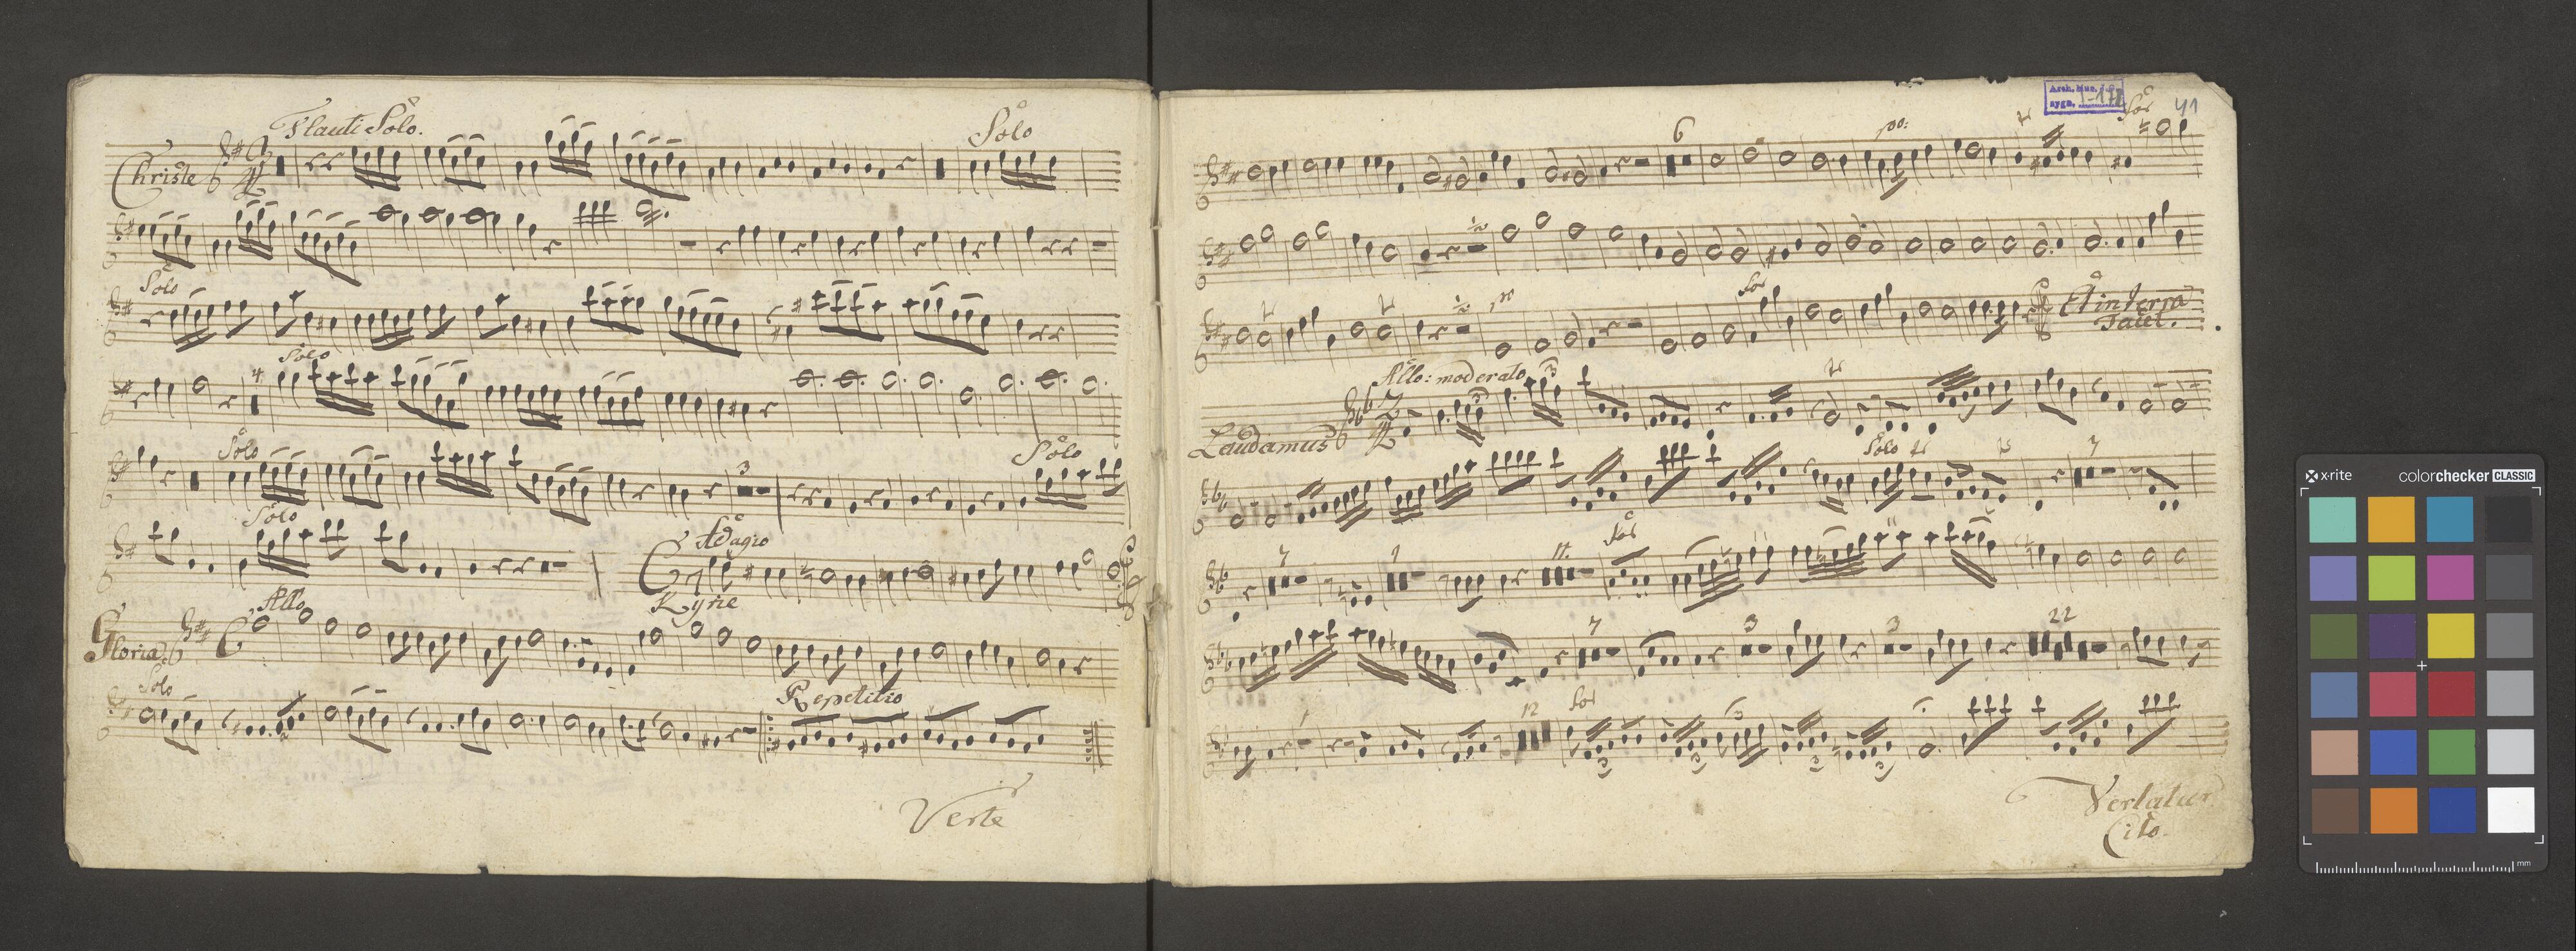 Flauti Solo.
Solo
Christe
Solo
Solo
4
Solo
Solo
3
Solo
Adagio
Kyrie
Allo
Gloria
Solo
Repetitio
Verte
41
6
po:
Sol
Et in terra
Tacet.
Allo: moderato
3
Laudamus
Solo
7
7
1
11.
Sol
7
3
3
22
1
12
Sol
3
3
3
3
3
Vertatur
Cito.
x-rite
colorchecker CLASSIC
mm